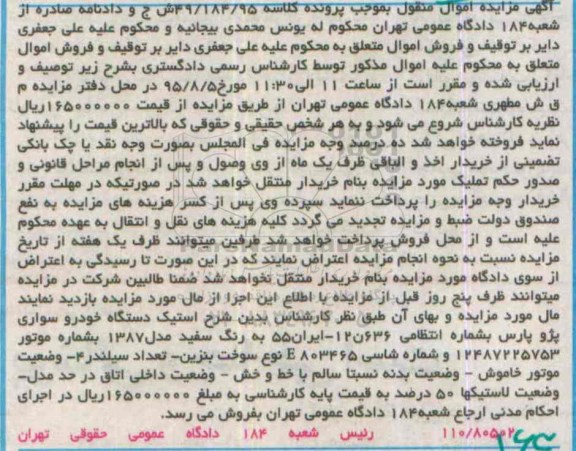 آگهی مزایده اموال منقول بموجب پرونده کلاسه ۴۹/۱۸۴/۹۵ش ج و دادنامه صادره از
شعبه۱۸۴ دادگاه عمومی تهران محکوم له یونس محمدی بیجانیه و محکوم علیه علی جعفری
دایر بر توقیف و فروش اموال متعلق به محکوم علیه علی جعفری دایر بر توقیف و فروش اموال
متعلق به محکوم علیه اموال مذکور توسط کارشناس رسمی دادگستری بشرح زیر توصیف و
ارزیابی شده و مقرر است از ساعت ۱۱ الی۱۱:۳۰ مورخ۹۵/۸/۵ در محل دفتر مزایده م
ق ش مطهری شعبه۱۸۴ دادگاه عمومی تهران از طریق مزایده از قیمت ۱۶۵۰۰۰۰۰۰ریال
نظریه کارشناس شروع می شود و به هر شخص حقیقی و حقوقی که بالاترین قیمت را پیشنهاد
نماید فروخته خواهد شد ده درصد وجه مزایده فی المجلس بصورت وجه نقد یا چک بانکی
تضمینی از خریدار اخذ و الباقی ظرف یک ماه از وی وصول و پس از انجام مراحل قانونی و
صدور حکم تملیک مورد مزایده بنام خریدار منتقل خواهد شد در صورتیکه در مهلت مقرر
خریدار وجه مزایده را پرداخت ننماید سپرده وی پس از کسر هزینه های مزایده به نفع
صندوق دولت ضبط و مزایده تجدید می گردد کلیه هزینه های نقل و انتقال به عهده محکوم
علیه است و از محل فروش پرداخت خواهد شد طرفین میتوانند ظرف یک هفته از تاریخ
مزایده نسبت به نحوه انجام مزایده اعتراض نمایند که در این صورت تا رسیدگی به اعتراض
از سوی دادگاه مورد مزایده بنام خریدار منتقل نخواهد شد ضمنا طالبین شرکت در مزایده
میتوانند ظرف پنج روز قبل از مزایده با اطلاع این اجرا از مال مورد مزایده بازدید نمایند
مال مورد مزایده و بهای آن طبق نظر کارشناس بدین شرح استیک دستگاه خودرو سواری
پژو پارس بشماره انتظامی ۶۳۶ن۱۲-ایران۵۵ به رنگ سفید مدل۱۳۸۷ بشماره موتور
۱۲۴۸۷۲۲۵۷۵۳ و شماره شاسی E ۸۰۳۴۶۵ نوع سوخت بنزین- تعداد سیلندر۴- وضعیت
موتور خاموش - وضعیت بدنه نسبتا سالم با خط و خش - وضعیت داخلی اتاق در حد مدل-
وضعیت لاستیکها ۵۰ درصد به قیمت پایه کارشناسی به مبلغ ۱۶۵۰۰۰۰۰۰ریال در اجرای
احکام مدنی ارجاع شعبه۱۸۴ دادگاه عمومی تهران بفروش می رسد.
۱۱۰/۸۰۵۰۲ رئیس شعبه ۱۸۴ دادگاه عمومی حقوقی تهران